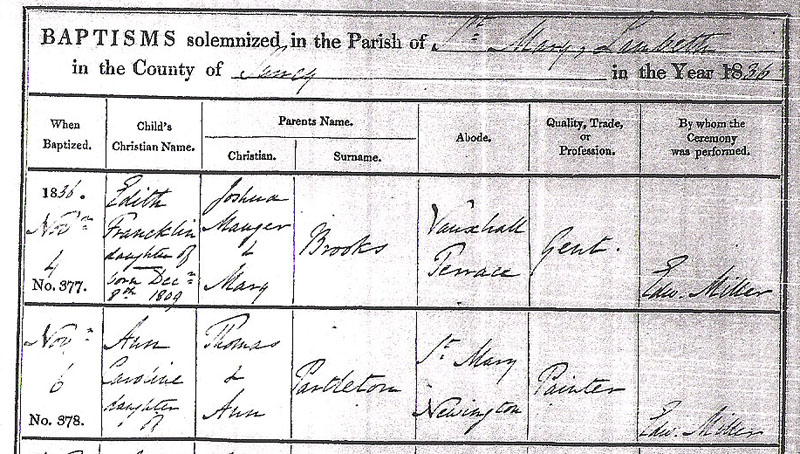 BAPTISMS solemnized in the Parish of St. Mary, Lambeth
in the County of Surrey in the Year 1836
When Baptized.
Child's Christian Name.
Parents Name.
Christian.
Surname.
Abode.
Quality, Trade, or Profession.
By whom the Ceremony was performed.
1836.
Novr
4
No. 377.
Edith
Francklin
daughter of
born Decr
8th 1809
Joshua
Mauger
&
Mary
Brooks
Vauxhall
Terrace
Gent.
Edw. Miller
Novr
6
No. 378.
Ann
Caroline
daughter
of
Thomas
&
Ann
Partleton
St. Mary
Newington
Painter
Edw. Miller